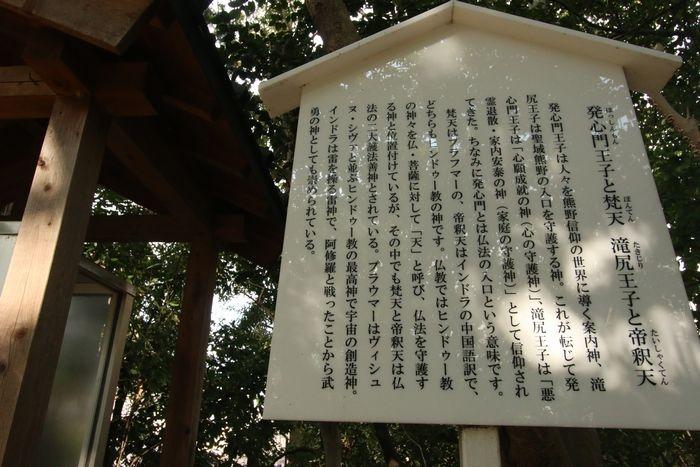 発心門王子と梵天 滝尻王子と帝釈天
ほっしんもん ぼんてん たきじり たいしゃくてん
発心門王子は人々を熊野信仰の世界に導く案内神、滝
尻王子は聖域熊野の入口を守護する神。これが転じて発
心門王子は「心願成就の神（心の守護神）」、滝尻王子は「悪
霊退散・家内安泰の神（家庭の守護神）」として信仰され
てきた。ちなみに発心門とは仏法の入口という意味です。
梵天はブラフマーの、帝釈天はインドラの中国語訳で、
どちらもヒンドゥー教の神です。仏教ではヒンドゥー教
の神々を仏・菩薩に対して「天」と呼び、仏法を守護す
る神と位置付けているが、その中でも梵天と帝釈天は仏
法の二大護法善神とされている。ブラウマーはヴィシュ
ヌ・シヴァと並ぶヒンドゥー教の最高神で宇宙の創造神。
インドラは雷を操る雷神で、阿修羅と戦ったことから武
勇の神としても崇められている。